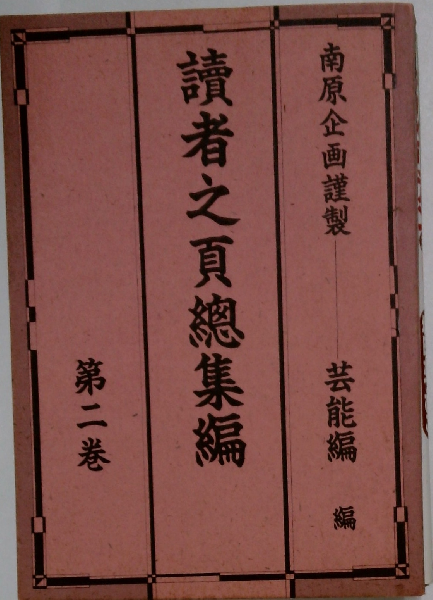 南原企画謹製――芸能編 編
讀者之頁總集編
第二巻